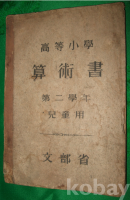 高等小學
算術書
第二學年
兒童用
文部省
kobay